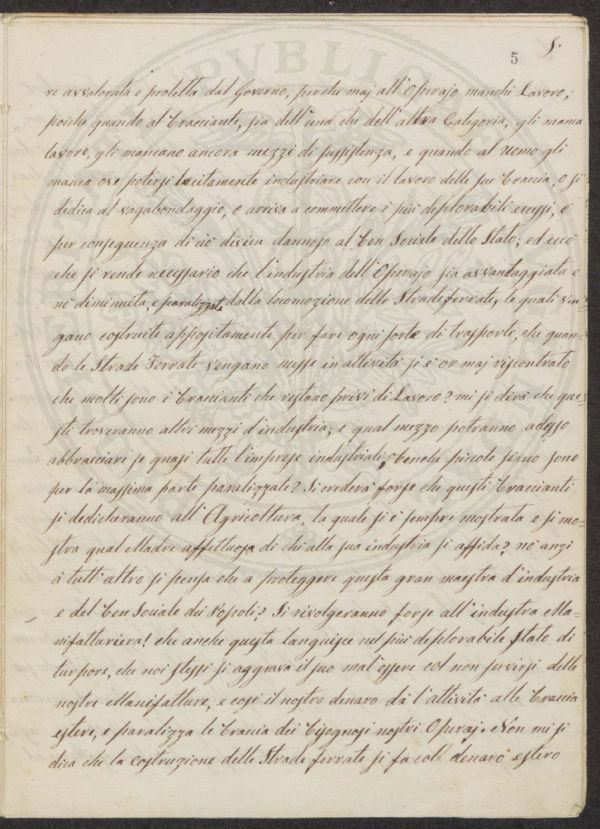 5 5.
re avvalorata e protetta dal Governo, perche maj all'Operajo manchi Lavoro;
poiche quando al Bracciante, sia dell'una che dell'altra Categoria, gli manca
lavoro, gli mancano ancora mezzi di sussistenza, e quando al uomo gli
manca ove potersi lecitamente industriare con il lavoro delle sue Braccia, o si
dedica al vagabondaggio, o arriva a commettere i più deplorabili eccessi, e
per conseguenza di ciò divien dannoso al Ben Sociale dello Stato; ed ecco
che si rende necessario che l'industria dell'Operajo sia avvantaggiata e
nò diminuita, e paralizzata dalla locomozione delle Strade ferrate, le quali ven=
gano costruite appositamente per fare ogni sorta di trasporto, che quan=
do le Strade Ferrate vengano messe in attività si è or maj riscontrato
che molti sono i Braccianti che restano privi di Lavoro? mi si dirà che que=
sti troveranno altri mezzi d'industria; e qual mezzo potranno adesso
abbracciare se quasi tutte l'imprese industriali, benche piccole siano sono
per la massima parte paralizzate? Si crederà forse che questi Braccianti
si dedicheranno all'Agricoltura, la quale si è sempre mostrata e si mo=
stra qual Madre affettuosa di chi alla sua industria si affida? nò anzi
à tutt'altro si pensa che a proteggere questa gran maestra d'industria
e del Ben Sociale dei Popoli? Si rivolgeranno forse all'industra Ma=
nifatturiera! che anche questa languisce nel più deplorabile stato di
turpore, che noi stessi si aggrava il suo mal'essere col non servirsi delle
nostre Manifatture, e così il nostro denaro dà l'attività alle Braccia
estere, e paralizza le Braccia dei Bisognosi nostri Operaj. Non mi si
dica che la costruzione delle Strade ferrate si fa coll'denaro estero